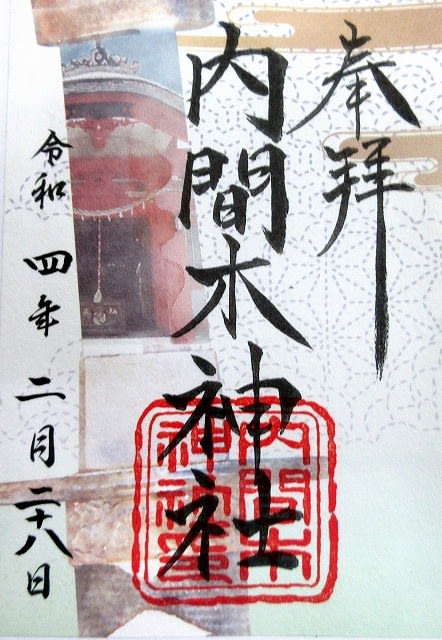 奉拝
内間木神社
内間木
神社璽
令和四年二月二十八日